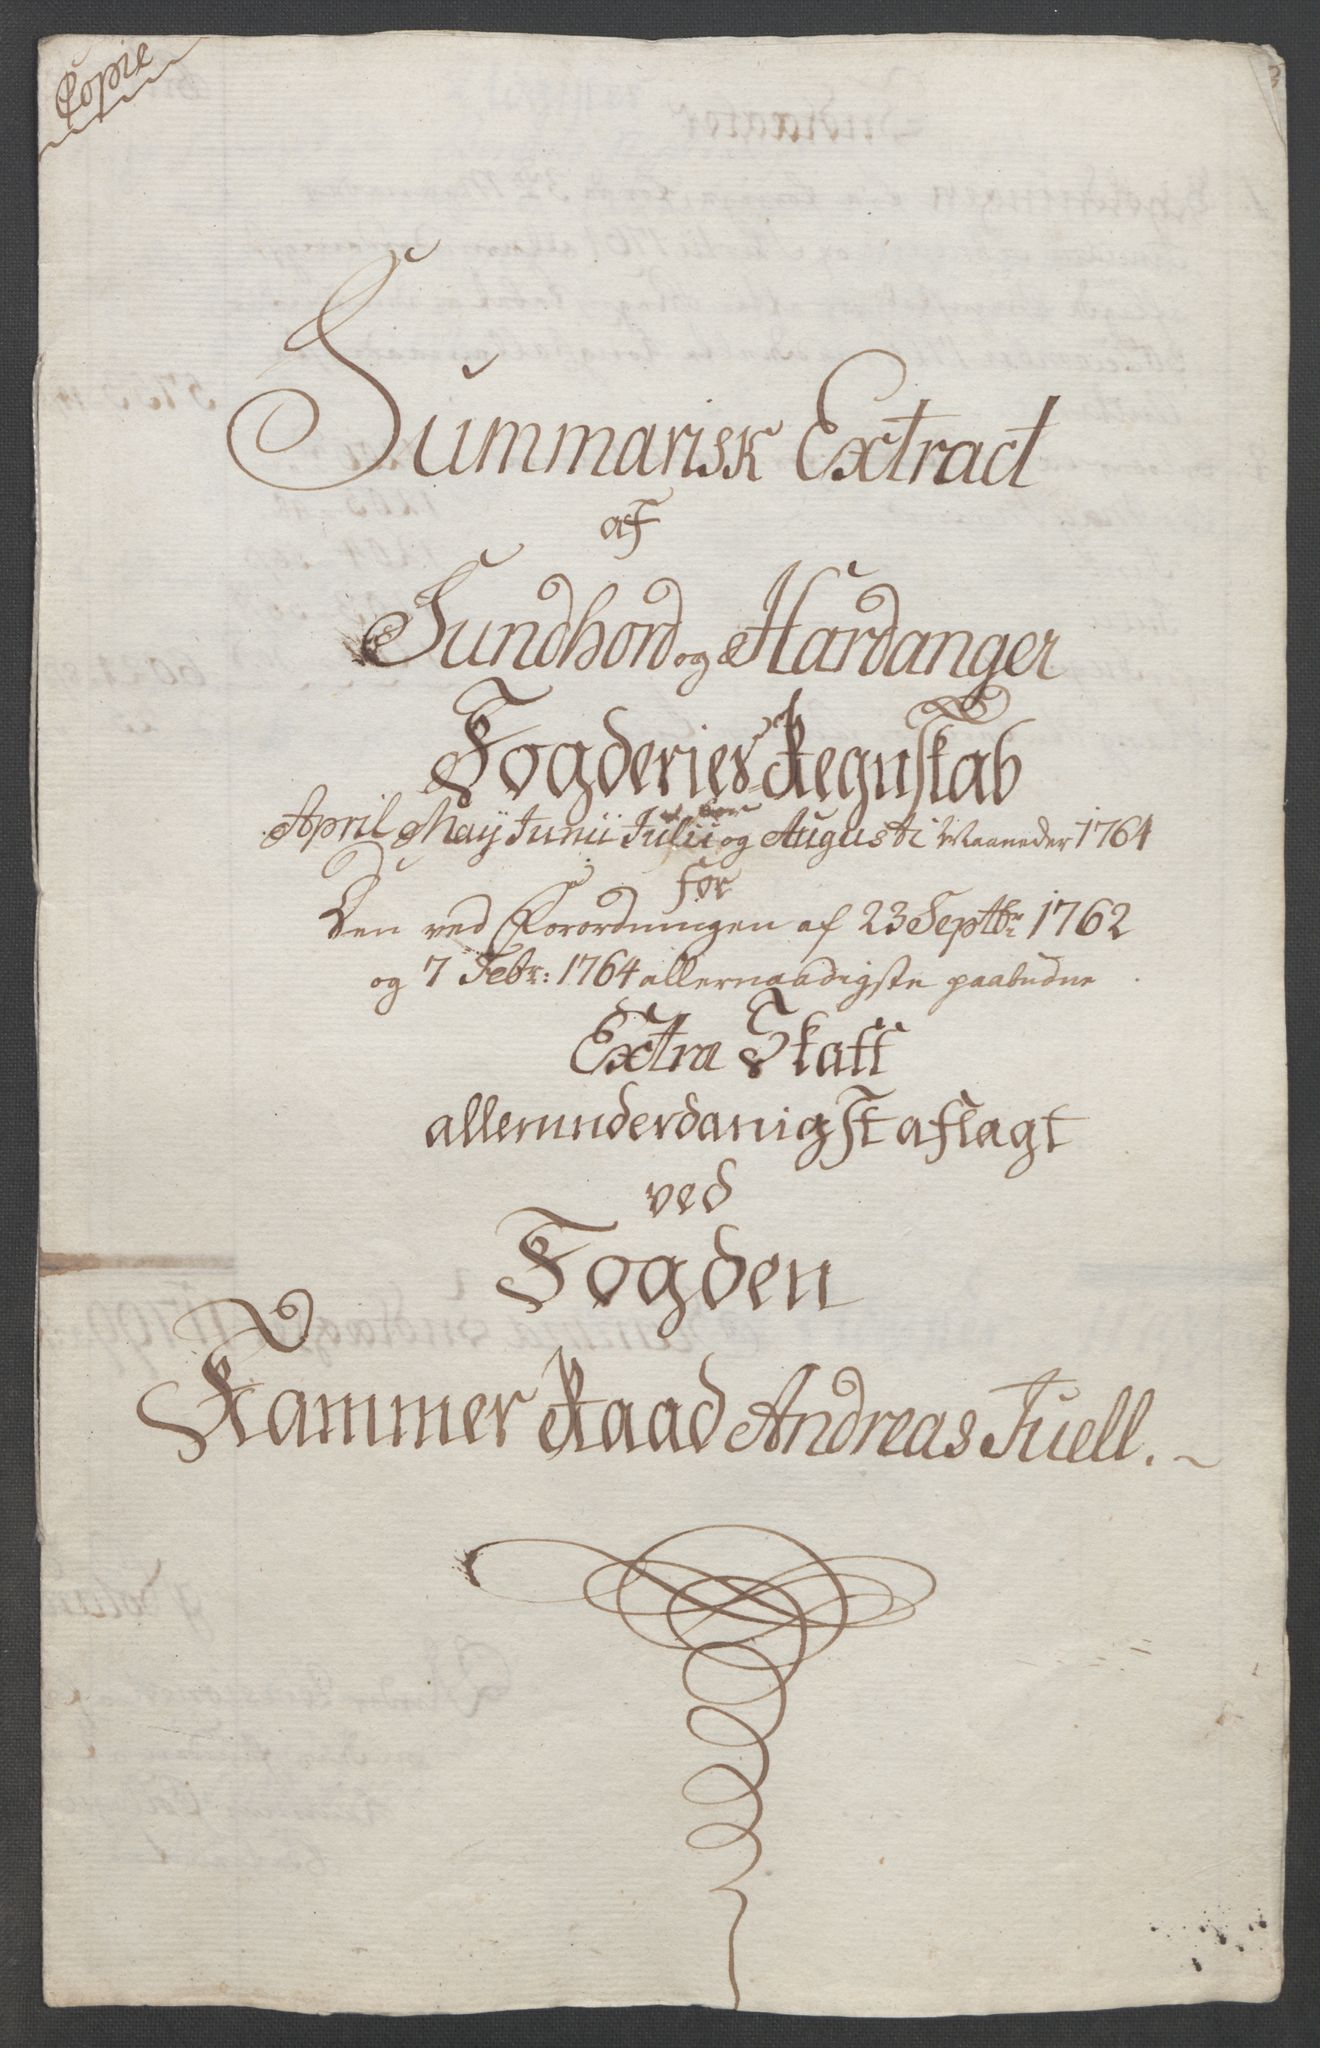 Copie
Summarisk Extract
af
Sundhord og Hardanger
Fogderies Regnskab
April May Junii Julii og Augusti Maaneder 1764
for
Den ved Forordningen af 23 Septbr: 1762
og 7 Febr: 1764 allernaadigste paabudne
Extra Skatt
allerunderdanigst aflagt
ved
Fogden
Kammer Raad Andreas Juell.